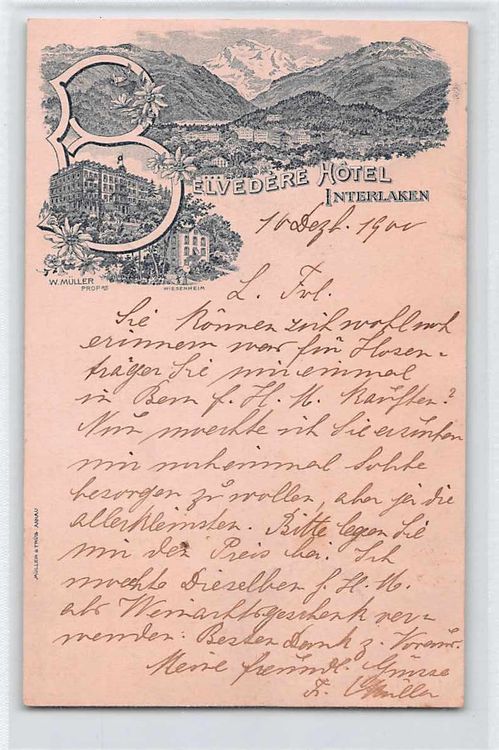 BELVÉDÈRE HÔTEL
INTERLAKEN
W. MÜLLER
PROP.
WIESENHEIM
10 Dezb. 1900
L. Frl.
Sie können sich wohl noch
erinnern was für Hosen-
träger Sie mir einmal
in Bern f. H. M. kauften?
Nun moechte ich Sie ersuchen
mir noch einmal solche
besorgen zu wollen, aber ja die
allerkleinsten. Bitte legen Sie
mir den Preis bei. Ich
moechte Dieselben f. H. M.
als Weinachtsgeschenk ver-
wenden. Besten Dank z. Voraus.
Meine freundl. Grüsse
Fr. Müller
MÜLLER & TRÜB AARAU